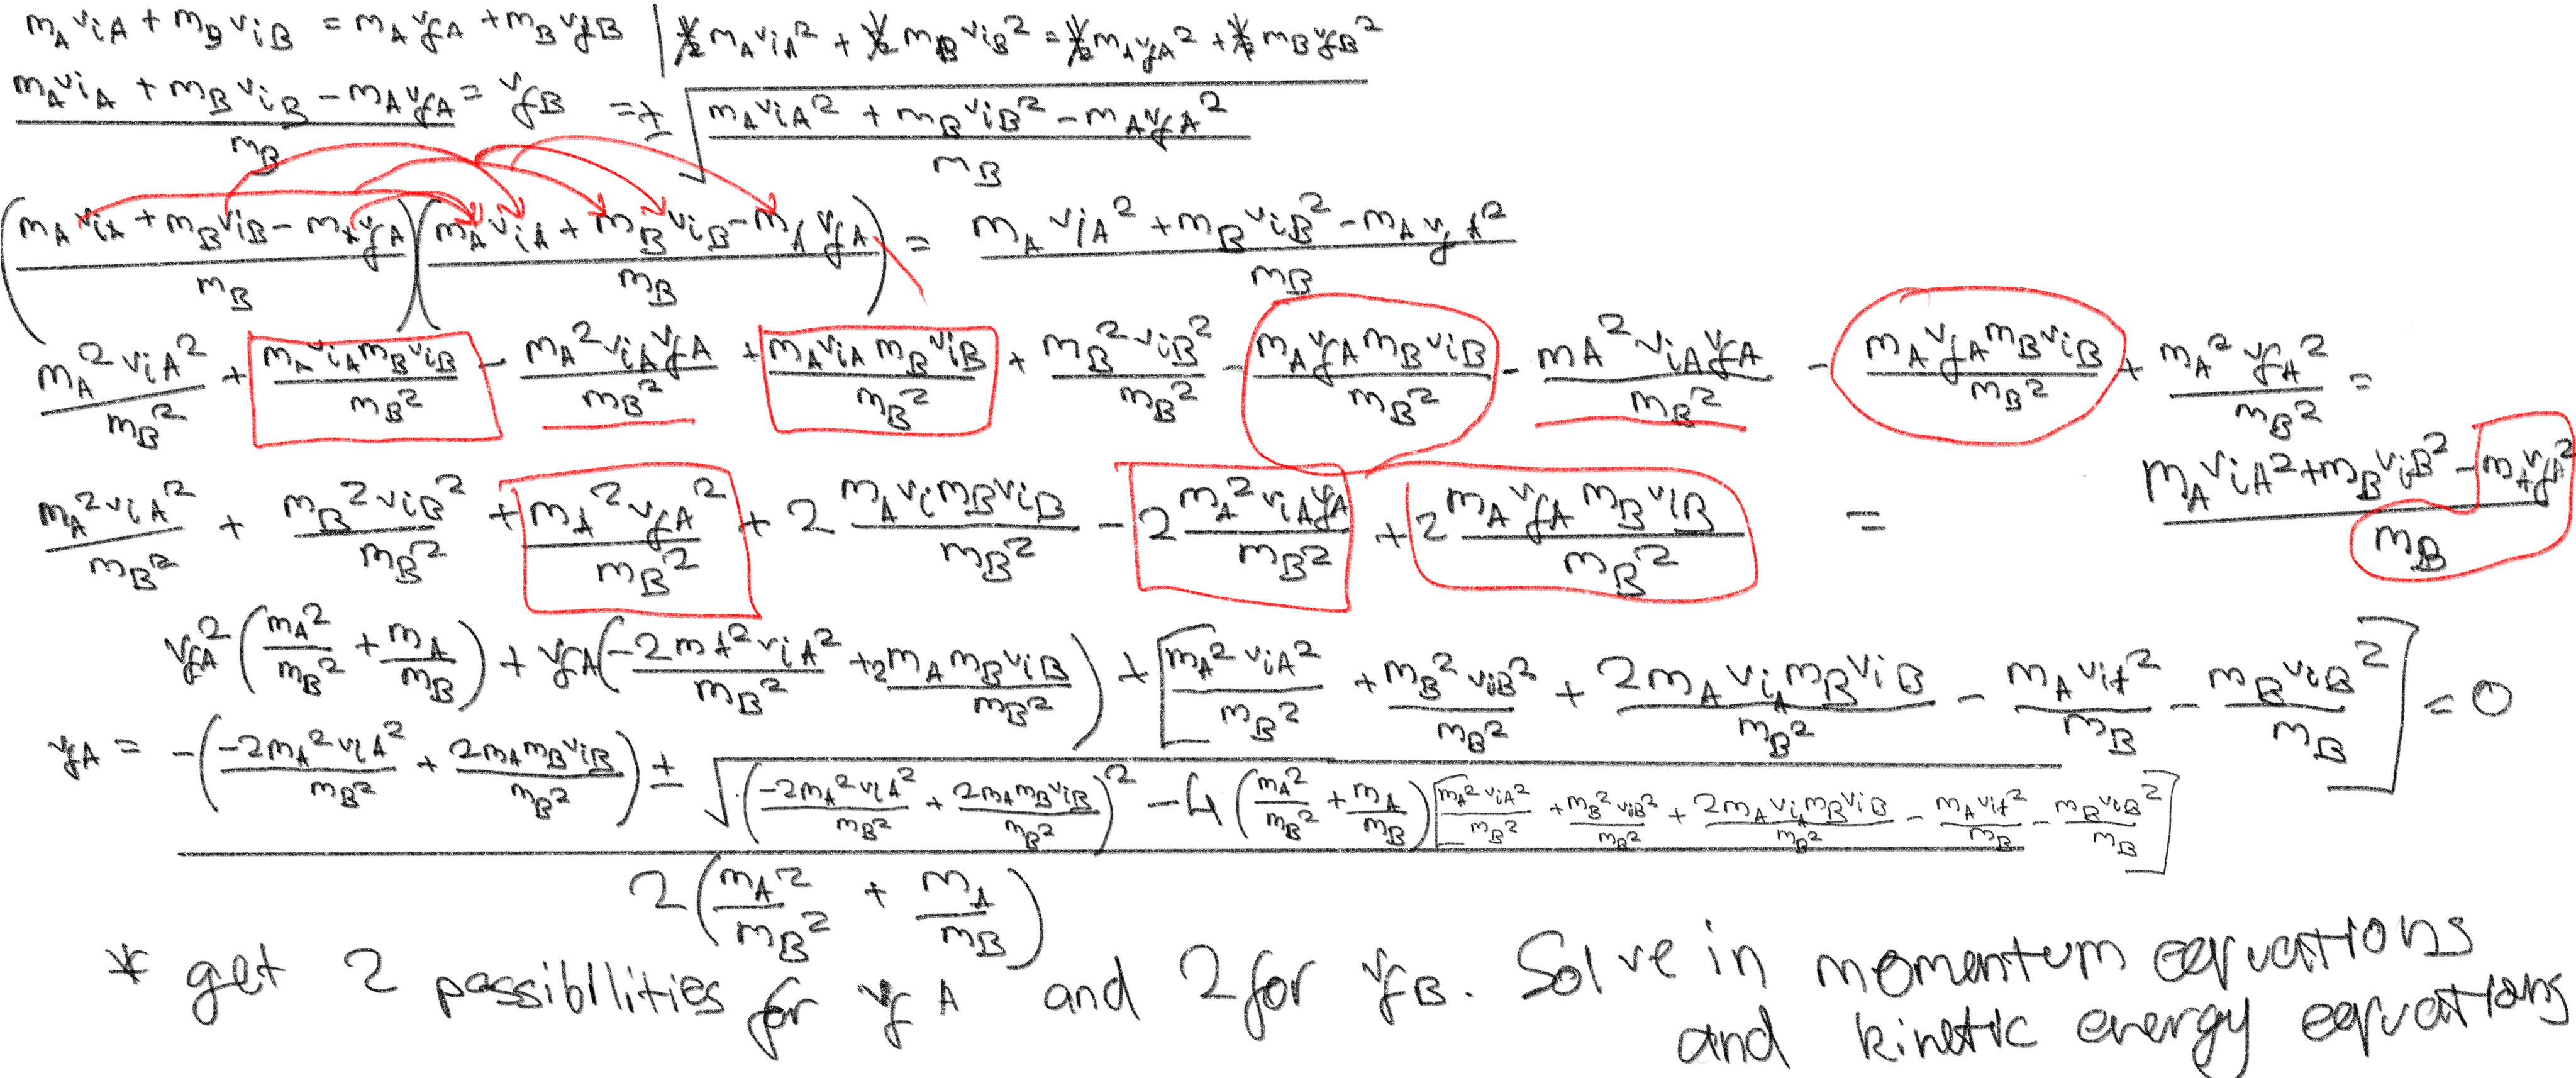 m_A v_iA + m_B v_iB = m_A v_fA + m_B v_fB | ½ m_A v_iA² + ½ m_B v_iB² = ½ m_A v_fA² + ½ m_B v_fB²
(m_A v_iA + m_B v_iB − m_A v_fA)/m_B = v_fB = ± √((m_A v_iA² + m_B v_iB² − m_A v_fA²)/m_B)
((m_A v_iA + m_B v_iB − m_A v_fA)/m_B)((m_A v_iA + m_B v_iB − m_A v_fA)/m_B) = (m_A v_iA² + m_B v_iB² − m_A v_fA²)/m_B
m_A² v_iA²/m_B² + m_A v_iA m_B v_iB/m_B² − m_A² v_iA v_fA/m_B² + m_A v_iA m_B v_iB/m_B² + m_B² v_iB²/m_B² − m_A v_fA m_B v_iB/m_B² − m_A² v_iA v_fA/m_B² − m_A v_fA m_B v_iB/m_B² + m_A² v_fA²/m_B² =
m_A² v_iA²/m_B² + m_B² v_iB²/m_B² + m_A² v_fA²/m_B² + 2 m_A v_i m_B v_iB/m_B² − 2 m_A² v_iA v_fA/m_B² + 2 m_A v_fA m_B v_iB/m_B² = (m_A v_iA² + m_B v_iB² − m_A v_fA²)/m_B
v_fA² (m_A²/m_B² + m_A/m_B) + v_fA (−2 m_A² v_iA²/m_B² + 2 m_A m_B v_iB/m_B²) + [m_A² v_iA²/m_B² + m_B² v_iB²/m_B² + 2 m_A v_iA m_B v_iB/m_B² − m_A v_iA²/m_B − m_B v_iB²/m_B] = 0
v_fA = (−(−2 m_A² v_iA²/m_B² + 2 m_A m_B v_iB/m_B²) ± √((−2 m_A² v_iA²/m_B² + 2 m_A m_B v_iB/m_B²)² − 4 (m_A²/m_B² + m_A/m_B)[m_A² v_iA²/m_B² + m_B² v_iB²/m_B² + 2 m_A v_iA m_B v_iB/m_B² − m_A v_iA²/m_B − m_B v_iB²/m_B]))/(2 (m_A²/m_B² + m_A/m_B))
* get 2 possibilities for v_fA and 2 for v_fB. Solve in momentum equations
and kinetic energy equations